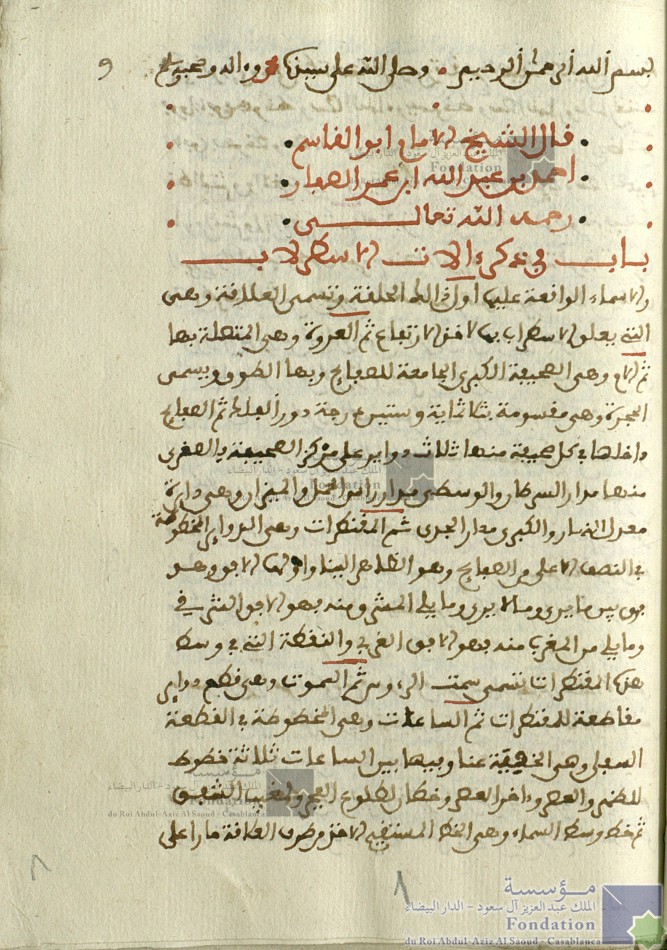 بسم الله الرحمن الرحيم وصلى الله على سيدنا محمد واله وصحبه
قال الشيخ الامام ابو القاسم
احمد بن عبد الله ابن عمر الصفار
رحمه الله تعالى
باب في ذكر الات الاسطرلاب
والاسماء الواقعة عليها اول ذلك الحلقة وتسمى العلاقة وهي
التي يعلق الاسطرلاب بها لاخذ الارتفاع ثم العروة وهي المتصلة بها
ثم الام وهي الصحيفة الكبرى الجامعة للصفايح وبها الطوق ويسمى
الحجرة وهي مقسومة بثلثماية وستين درجة دور الفلك ثم الصفايح
داخلها في كل صحيفة منها ثلاث دواير على مركز الصحيفة فالصغرى
منها مدار السرطان والوسطى مدار راس الحمل والميزان وهي دايرة
معدل النهار والكبرى مدار الجدي ثم المقنطرات وهي الدواير المخطوطة
في النصف الاعلى من الصفايح وهو الظاهر الينا واولها الافق وهو
فرق بين ما يرى وما لا يرى وما يلي المشرق منه فهو الافق الشرقي
وما يلي من المغرب منه فهو الافق الغربي والنقطة التي في وسط
هذه المقنطرات تسمى سمت الرءوس ثم السموت وهي قطع دواير
مقاطعة للمقنطرات ثم الساعات وهي المخطوطة في القطعة
السفلى وهي الخفية عنا وفيها بين الساعات ثلاثة خطوط
للظهر والعصر وءاخر العصر وخطان لطلوع الفجر ولمغيب الشفق
ثم خط وسط السماء وهي الخط المستقيم الاخذ من طرف العلاقة مارا على
مؤسسة
الملك عبد العزيز آل سعود - الدار البيضاء
Fondation
du Roi Abdul-Aziz Al Saoud - Casablanca